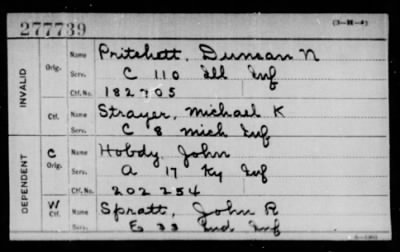 277739 (3-H-4)
INVALID
Orig. Name Pritchett, Duncan N
Serv. C 110 Ill Inf
Ctf. No. 182705
Ctf. Name Strayer, Michael K
Serv. C 8 Mich Inf
DEPENDENT
C Orig. Name Hobdy, John
Serv. A 17 Ky Inf
Ctf. No. 202254
W Ctf. Name Spratt, John R
Serv. E 33 Ind Inf